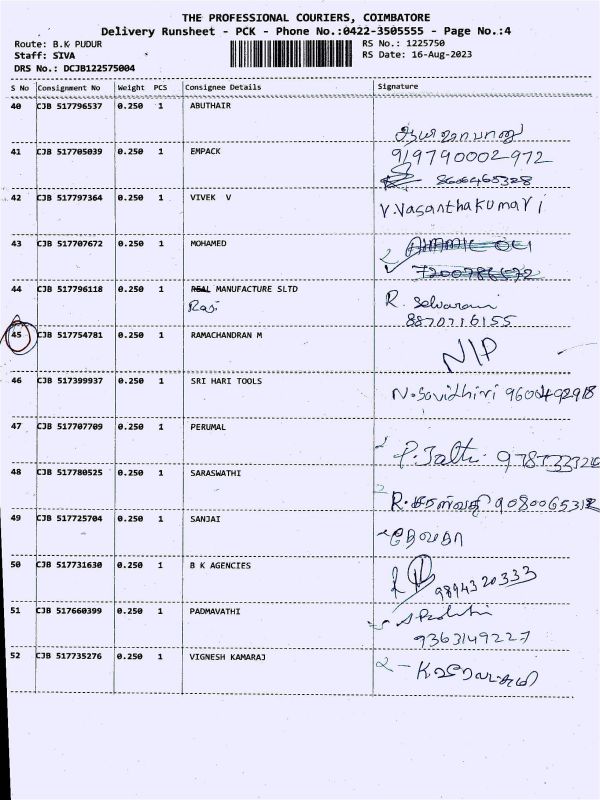 THE PROFESSIONAL COURIERS, COIMBATORE
Delivery Runsheet - PCK - Phone No.:0422-3505555 - Page No.:4
Route: B.K PUDUR RS No.: 1225750
Staff: SIVA RS Date: 16-Aug-2023
DRS No.: DCJB122575004
S No Consignment No Weight PCS Consignee Details Signature
40 CJB 517796537 0.250 1 ABUTHAIR
41 CJB 517705039 0.250 1 EMPACK
919790002972
8608465328
42 CJB 517797364 0.250 1 VIVEK V
V.Vasanthakumari
43 CJB 517707672 0.250 1 MOHAMED
44 CJB 517796118 0.250 1 REAL MANUFACTURE SLTD
Raj R. Selvarani
8870716155
45 CJB 517754781 0.250 1 RAMACHANDRAN M
N/P
46 CJB 517399937 0.250 1 SRI HARI TOOLS
N.Savidhini 9600492918
47 CJB 517707709 0.250 1 PERUMAL
48 CJB 517780525 0.250 1 SARASWATHI
R. சரஸ்வதி
49 CJB 517725704 0.250 1 SANJAI
50 CJB 517731630 0.250 1 B K AGENCIES
9894320333
51 CJB 517660399 0.250 1 PADMAVATHI
9363149227
52 CJB 517735276 0.250 1 VIGNESH KAMARAJ